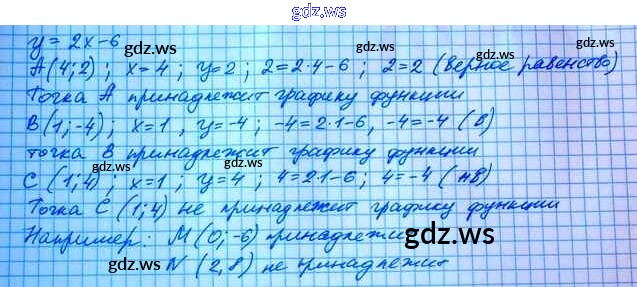 gdz.ws
y = 2x-6 gdz.ws
A(4;2); x=4; y=2; 2=2·4-6; 2=2 (верное равенство)
Точка A принадлежит графику функции
B(1;-4); x=1, y=-4; -4=2·1-6, -4=-4 (в)
точка B принадлежит графику функции
C (1;4); x=1; y=4; 4=2·1-6; 4=-4 (нв)
Точка C (1;4) не принадлежит графику функции
Например: M (0;-6) принадлежит
N (2,8) не принадлежит